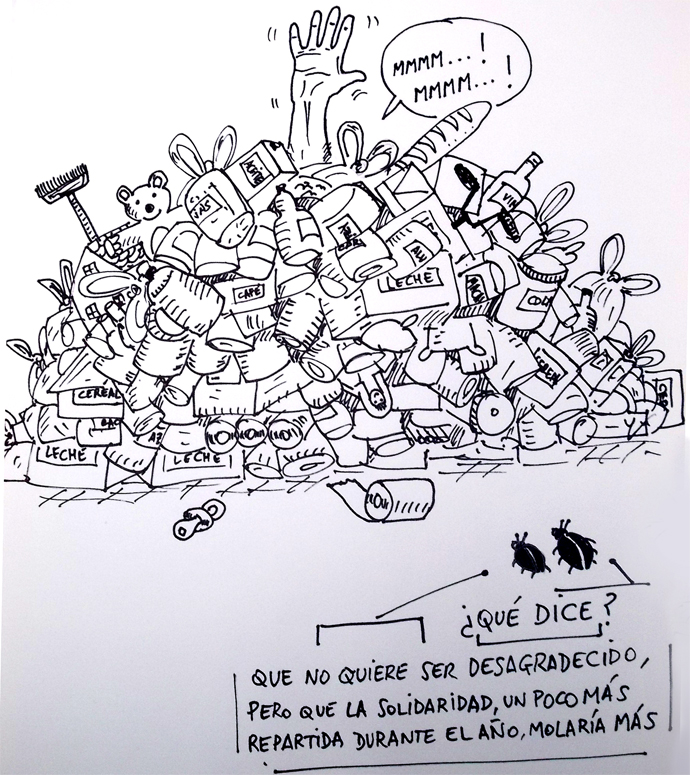 MMMM...!
MMMM...!
VINO
LECHE
CAFÉ
CEREAL
LECHE
LECHE
¿QUÉ DICE?
QUE NO QUIERE SER DESAGRADECIDO,
PERO QUE LA SOLIDARIDAD, UN POCO MÁS
REPARTIDA DURANTE EL AÑO, MOLARÍA MÁS